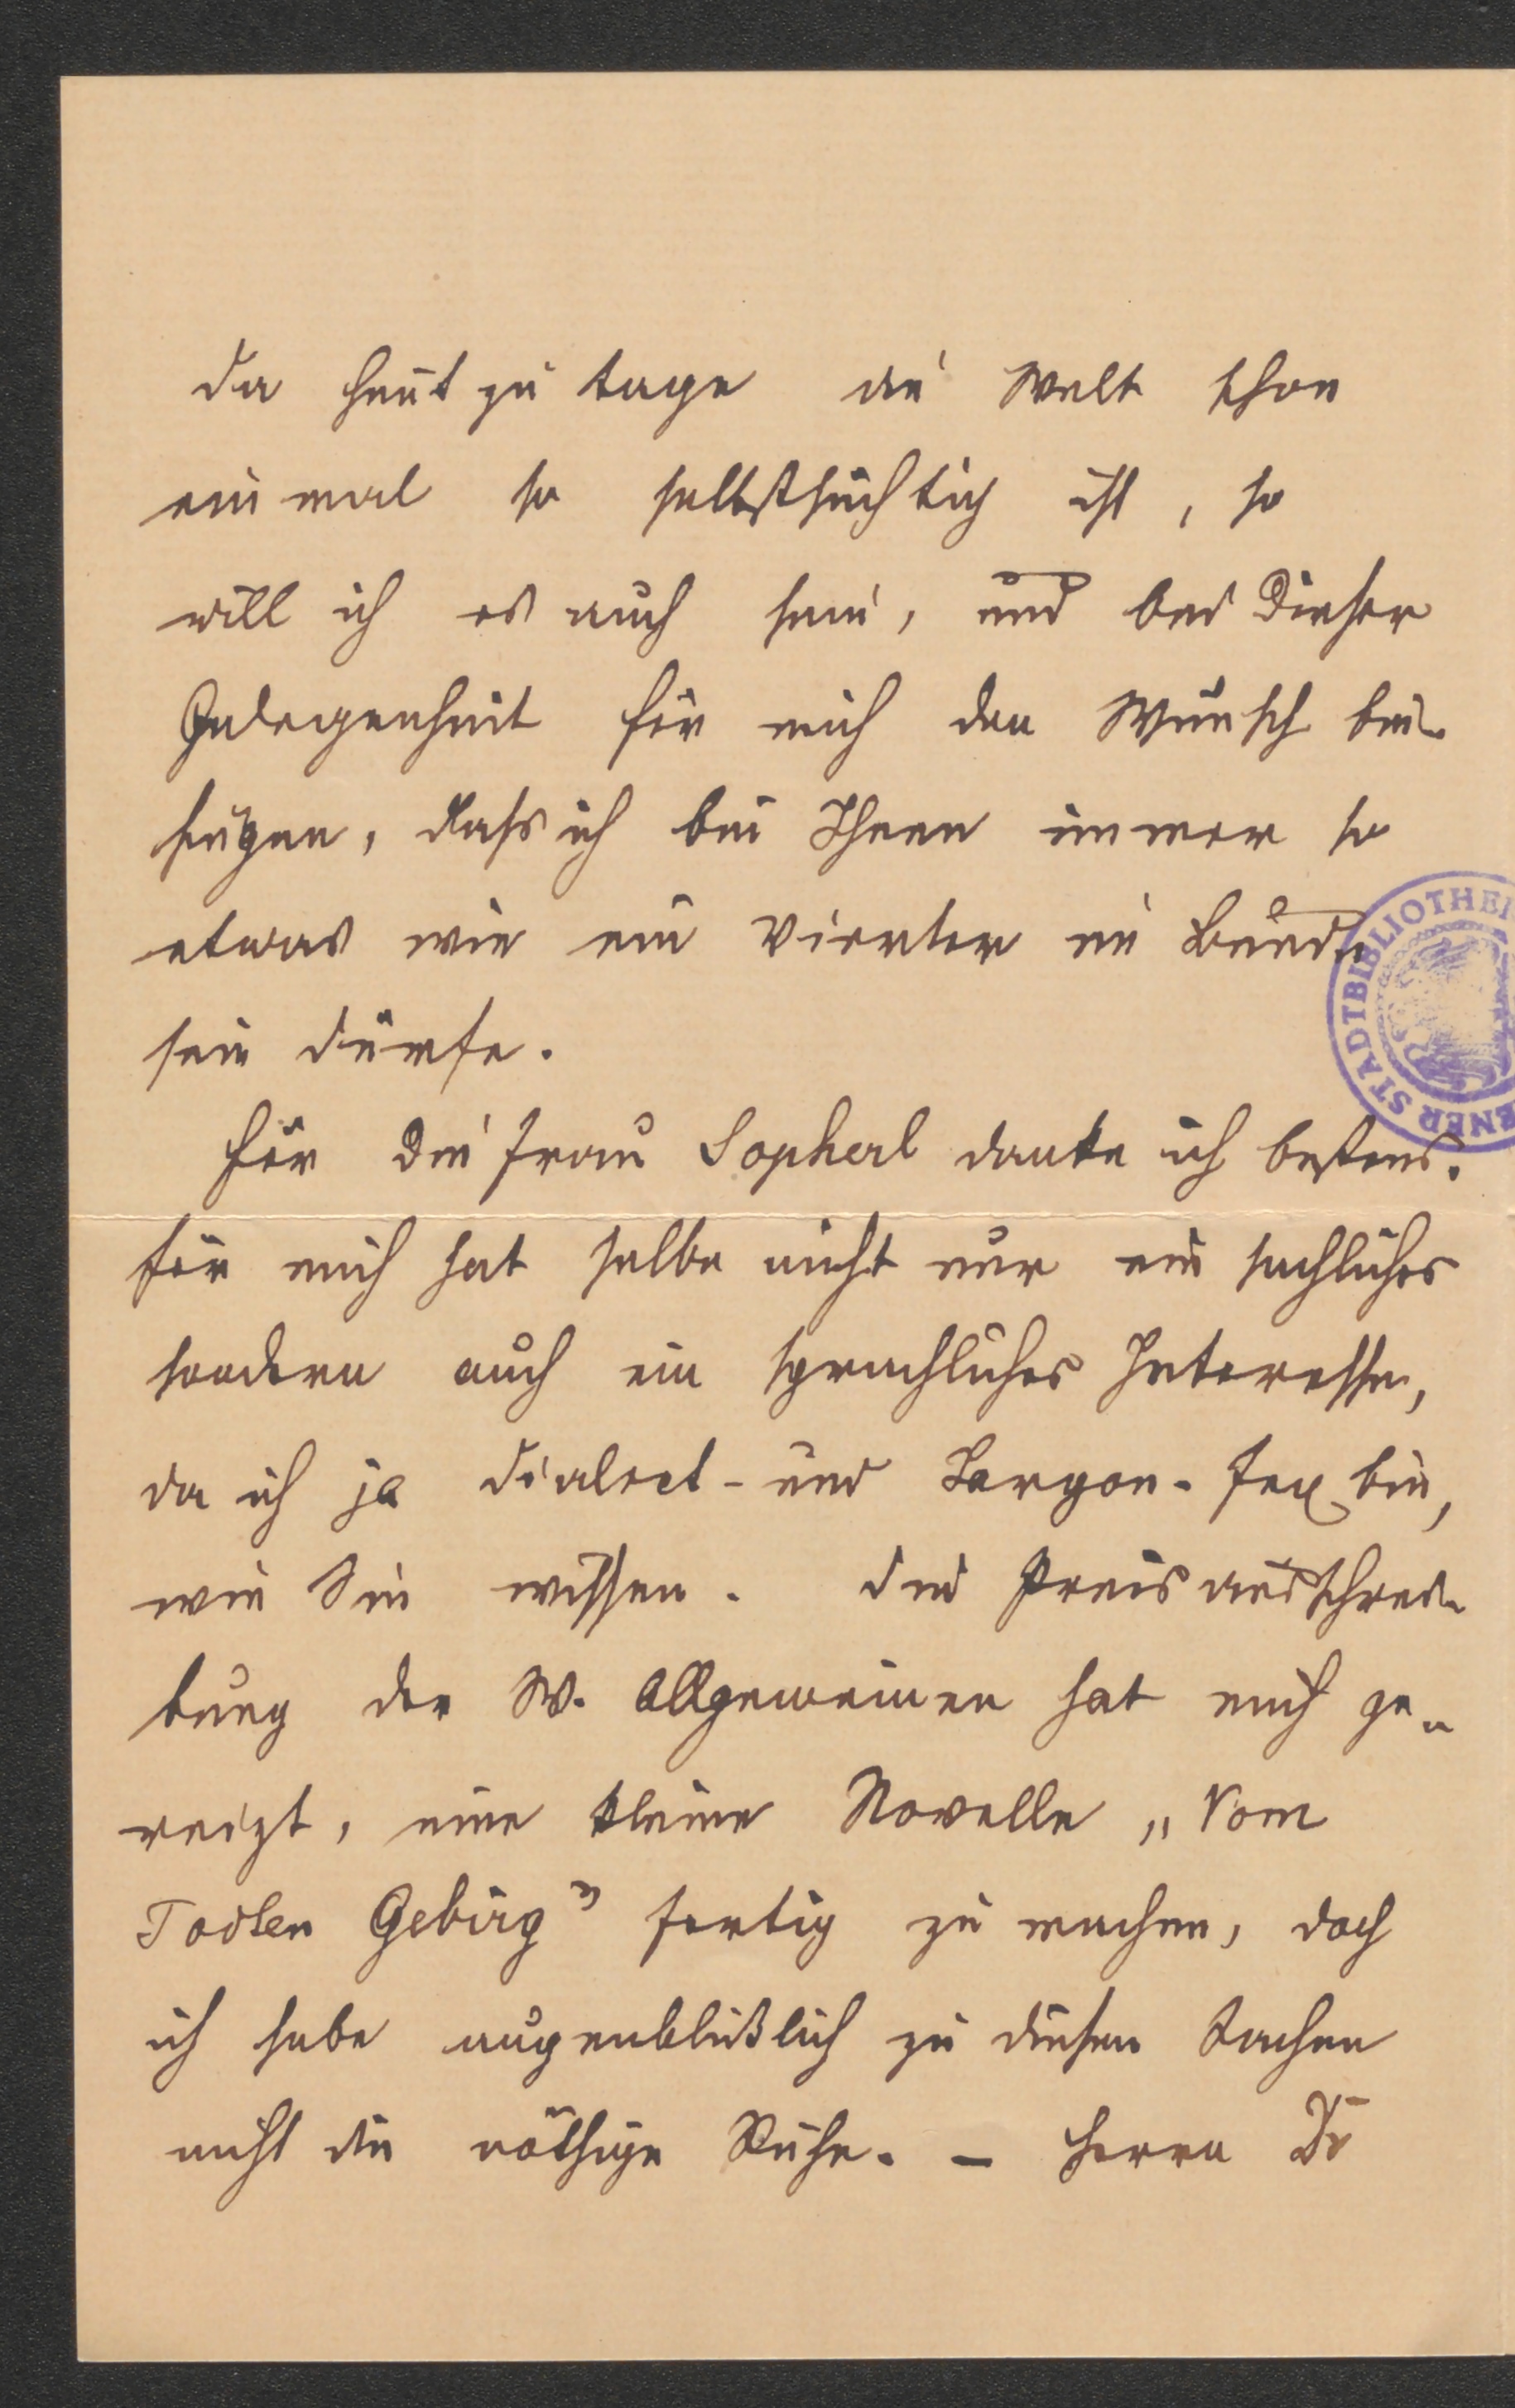 da heut zu tage die Welt schon
ein mal so selbstsüchtig ist, so
will ich es auch sein, und bei dieser
Gelegenheit für mich den Wunsch bei-
fügen, dass ich bei Ihnen immer so
etwas wie ein Vierter im Bunde
sein dürfe.
Für die Frau Sopherl danke ich bestens.
für mich hat selbe nicht nur ein sachliches
sondern auch ein sprachliches Interesse,
da ich ja Dialect- und Jargon-Fex bin,
wie Sie wissen. Die Preisausschrei-
bung der W. Allgemeinen hat mich ge-
reizt, eine kleine Novelle „Vom
Todten Gebirg" fertig zu machen, doch
ich habe augenblicklich zu diesen Sachen
nicht die nöthige Ruhe. – Herrn Dr
STADTBIBLIOTHEK